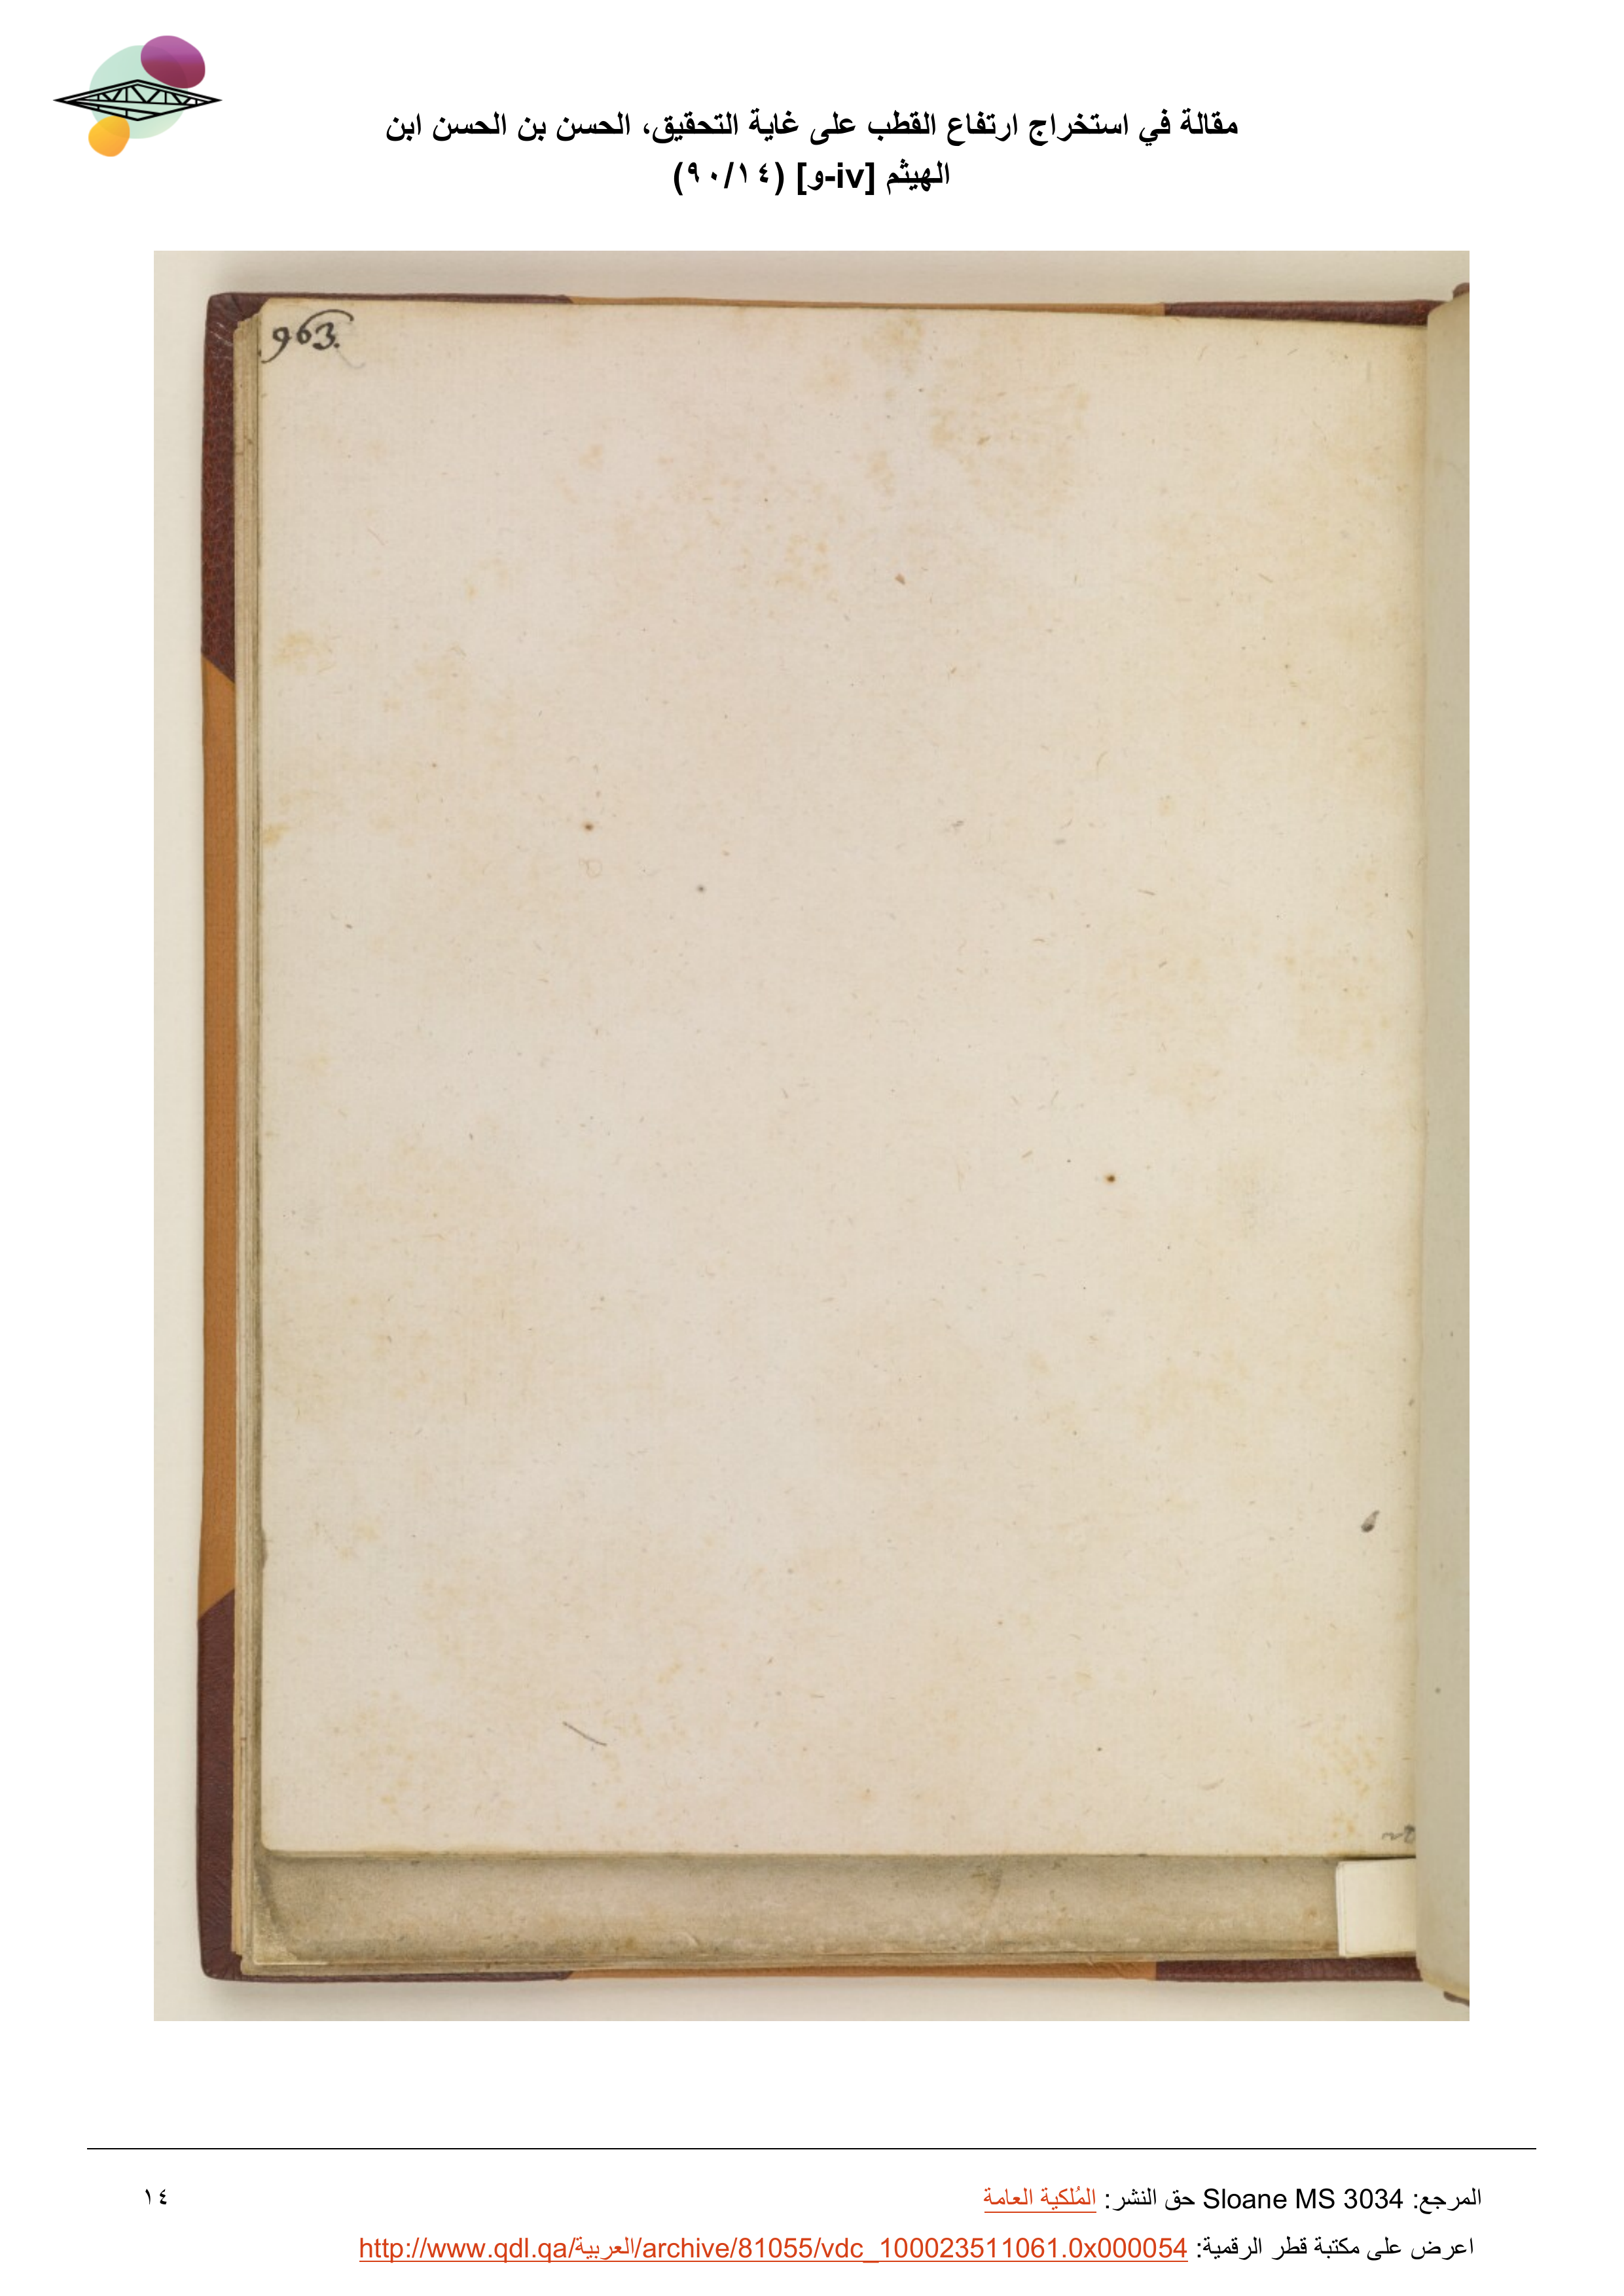 مقالة في استخراج ارتفاع القطب على غاية التحقيق، الحسن بن الحسن ابن
الهيثم [iv-و] (١٤/٩٠)
963.
المرجع: Sloane MS 3034 حق النشر: المُلكية العامة
١٤
اعرض على مكتبة قطر الرقمية: http://www.qdl.qa/العربية/archive/81055/vdc_100023511061.0x000054